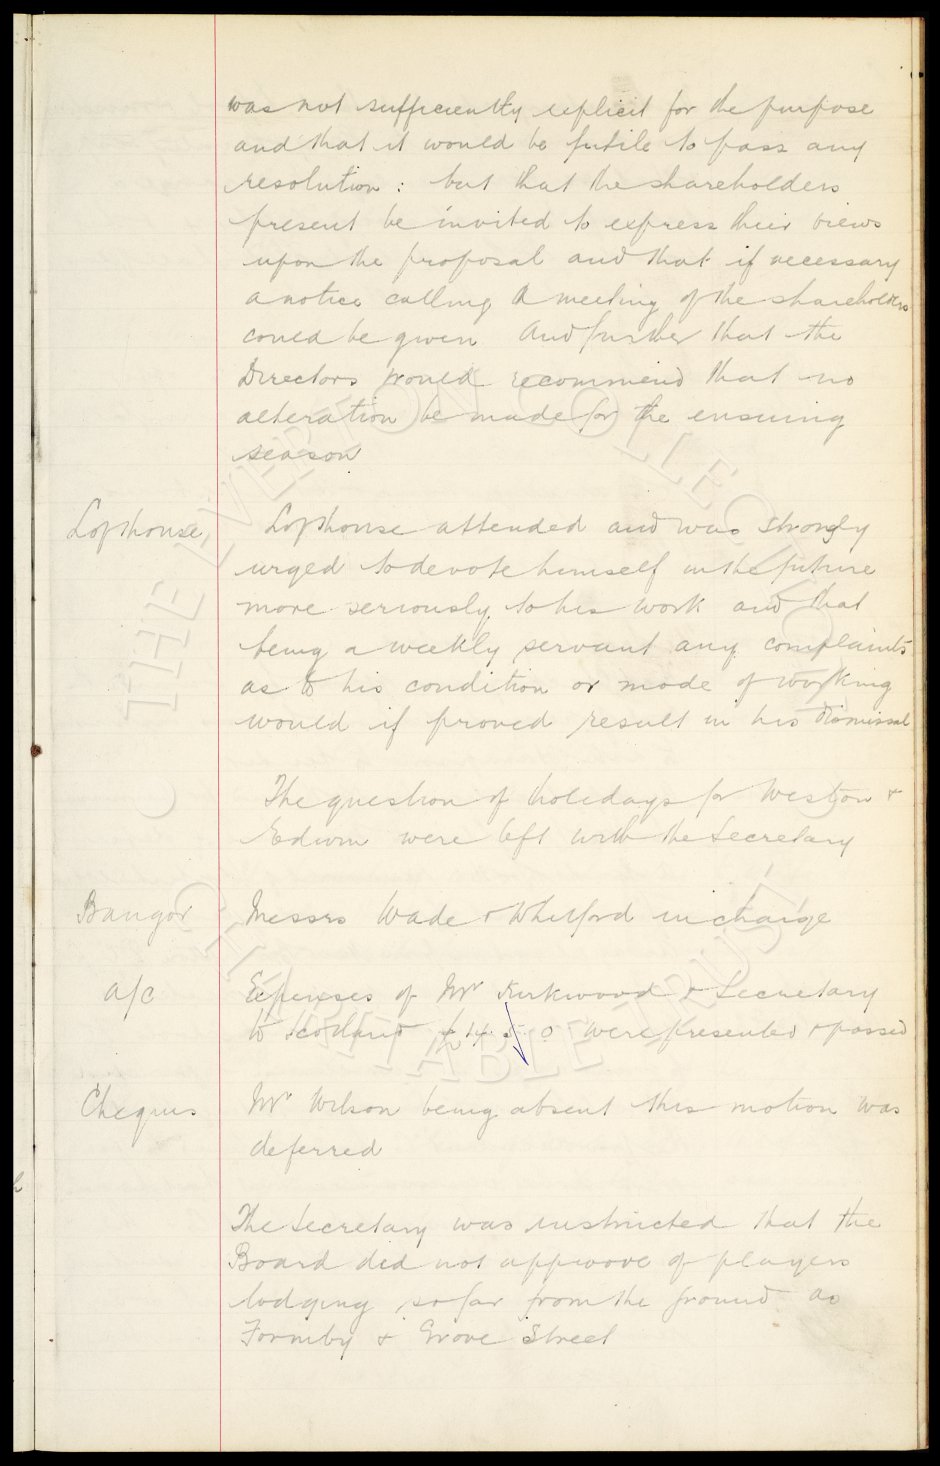 was not sufficiently explicit for the purpose
and that it would be futile to pass any
resolution : but that the shareholders
present be invited to express their views
upon the proposal and that if necessary
a notice calling a meeting of the shareholders
could be given And further that the
Directors would recommend that no
alteration be made for the ensuing
season
Lofthouse
Lofthouse attended and was strongly
urged to devote himself in the future
more seriously to his work and that
being a weekly servant any complaints
as to his condition or mode of working
would if proved result in his dismissal
The question of holidays for Weston &
Edwin were left with the Secretary
Bangor
Messrs Wade & Whitford in charge
a/c
Expenses of Mr Kirkwood & Secretary
to Scotland £14. 5. 0 were presented & passed
Cheques
Mr Wilson being absent this motion was
deferred
The Secretary was instructed that the
Board did not approove of players
lodging so far from the ground as
Formby & Grove Street
© THE EVERTON COLLECTION CHARITABLE TRUST